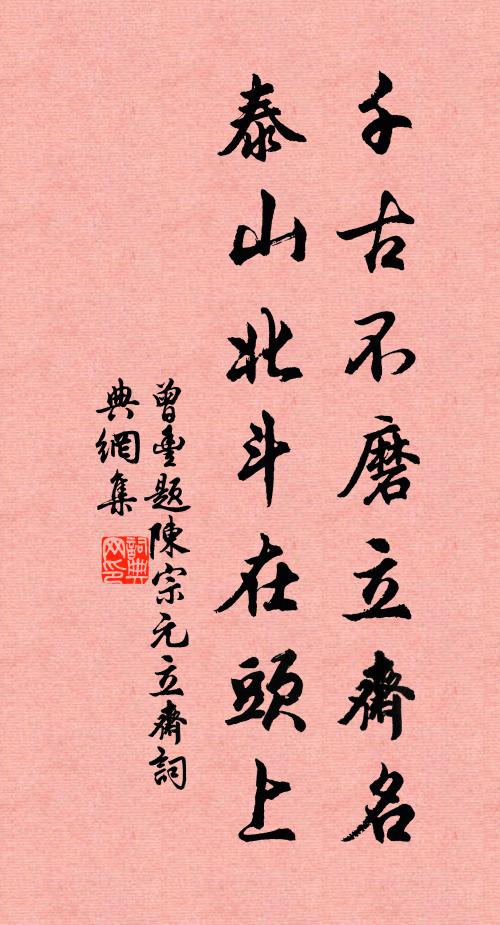 千古不磨立齋名
泰山北斗在頭上
曾豐題陳宗元立齋詞
典網集
詞典網印